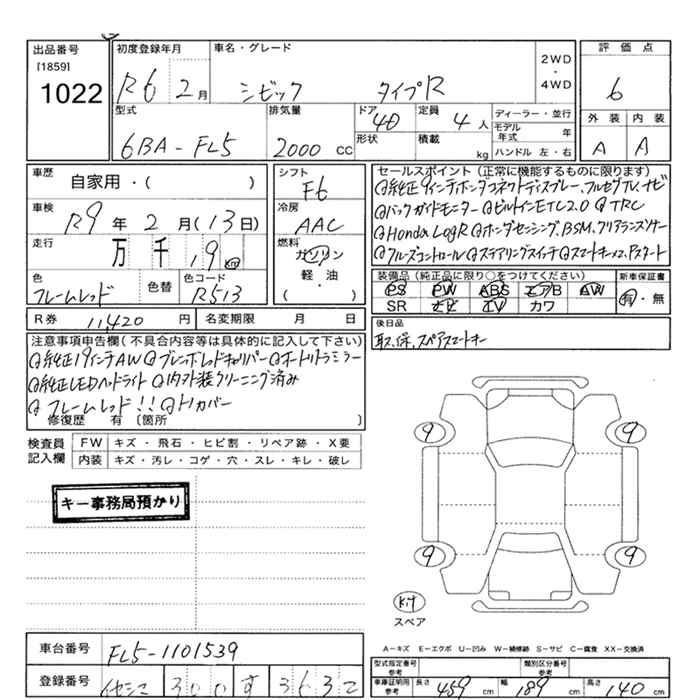 出品番号
[1859]
1022
初度登録年月
R6 2月
車名・グレード
シビック タイプR
2WD
・
4WD
評価点
6
外装 内装
A A
型式
6BA-FL5
排気量
2000 CC
ドア
4D
形状
定員
4人
積載
kg
ディーラー・並行
モデル年式 年
ハンドル 左・右
車歴
自家用・( )
車検
R9年2月(13日)
走行
万 千 19 km
色
フレームレッド
色替
色コード
R513
シフト
F6
冷房
AAC
燃料
ガソリン
軽・油
( )
セールスポイント (正常に機能するものに限ります)
純正9インチホンダコネクトディスプレー、フルセグTV、ナビ
バックガイドモニター ビルトインETC2.0 TRC
Honda LogR ホンダセンシング、BSM、クリアランスソナー
クルーズコントロール ステアリングスイッチ スマートキーx2、Pスタート
装備品 (純正品に限り○をつけてください)
PS PW ABS エアB AW
SR ナビ TV カワ
新車保証書
有・無
R券 11,420 円
名変期限 月 日
後日品
取、保、スペアスマートキー
注意事項申告欄(不具合内容等は具体的に記入して下さい)
純正19インチAW ブレンボレッドキャリパー オートリトラミラー
純正LEDヘッドライト 内外装クリーニング済み
フレームレッド!! トリカバー
修復歴 有 〔箇所 〕
検査員記入欄
FW キズ・飛石・ヒビ割・リペア跡・X要
内装 キズ・汚レ・コゲ・穴・スレ・キレ・破レ
キー事務局預かり
9 9
9 9
Kit
スペア
A－キズ E－エクボ U－凹み W－補修跡 S－サビ C－腐食 XX－交換済
車台番号 FL5-1101539
登録番号 300 す 3632
型式指定番号 参考
類別区分番号 参考
車庫証明用 参考
長さ 459 cm 幅 189 cm 高さ 140 cm